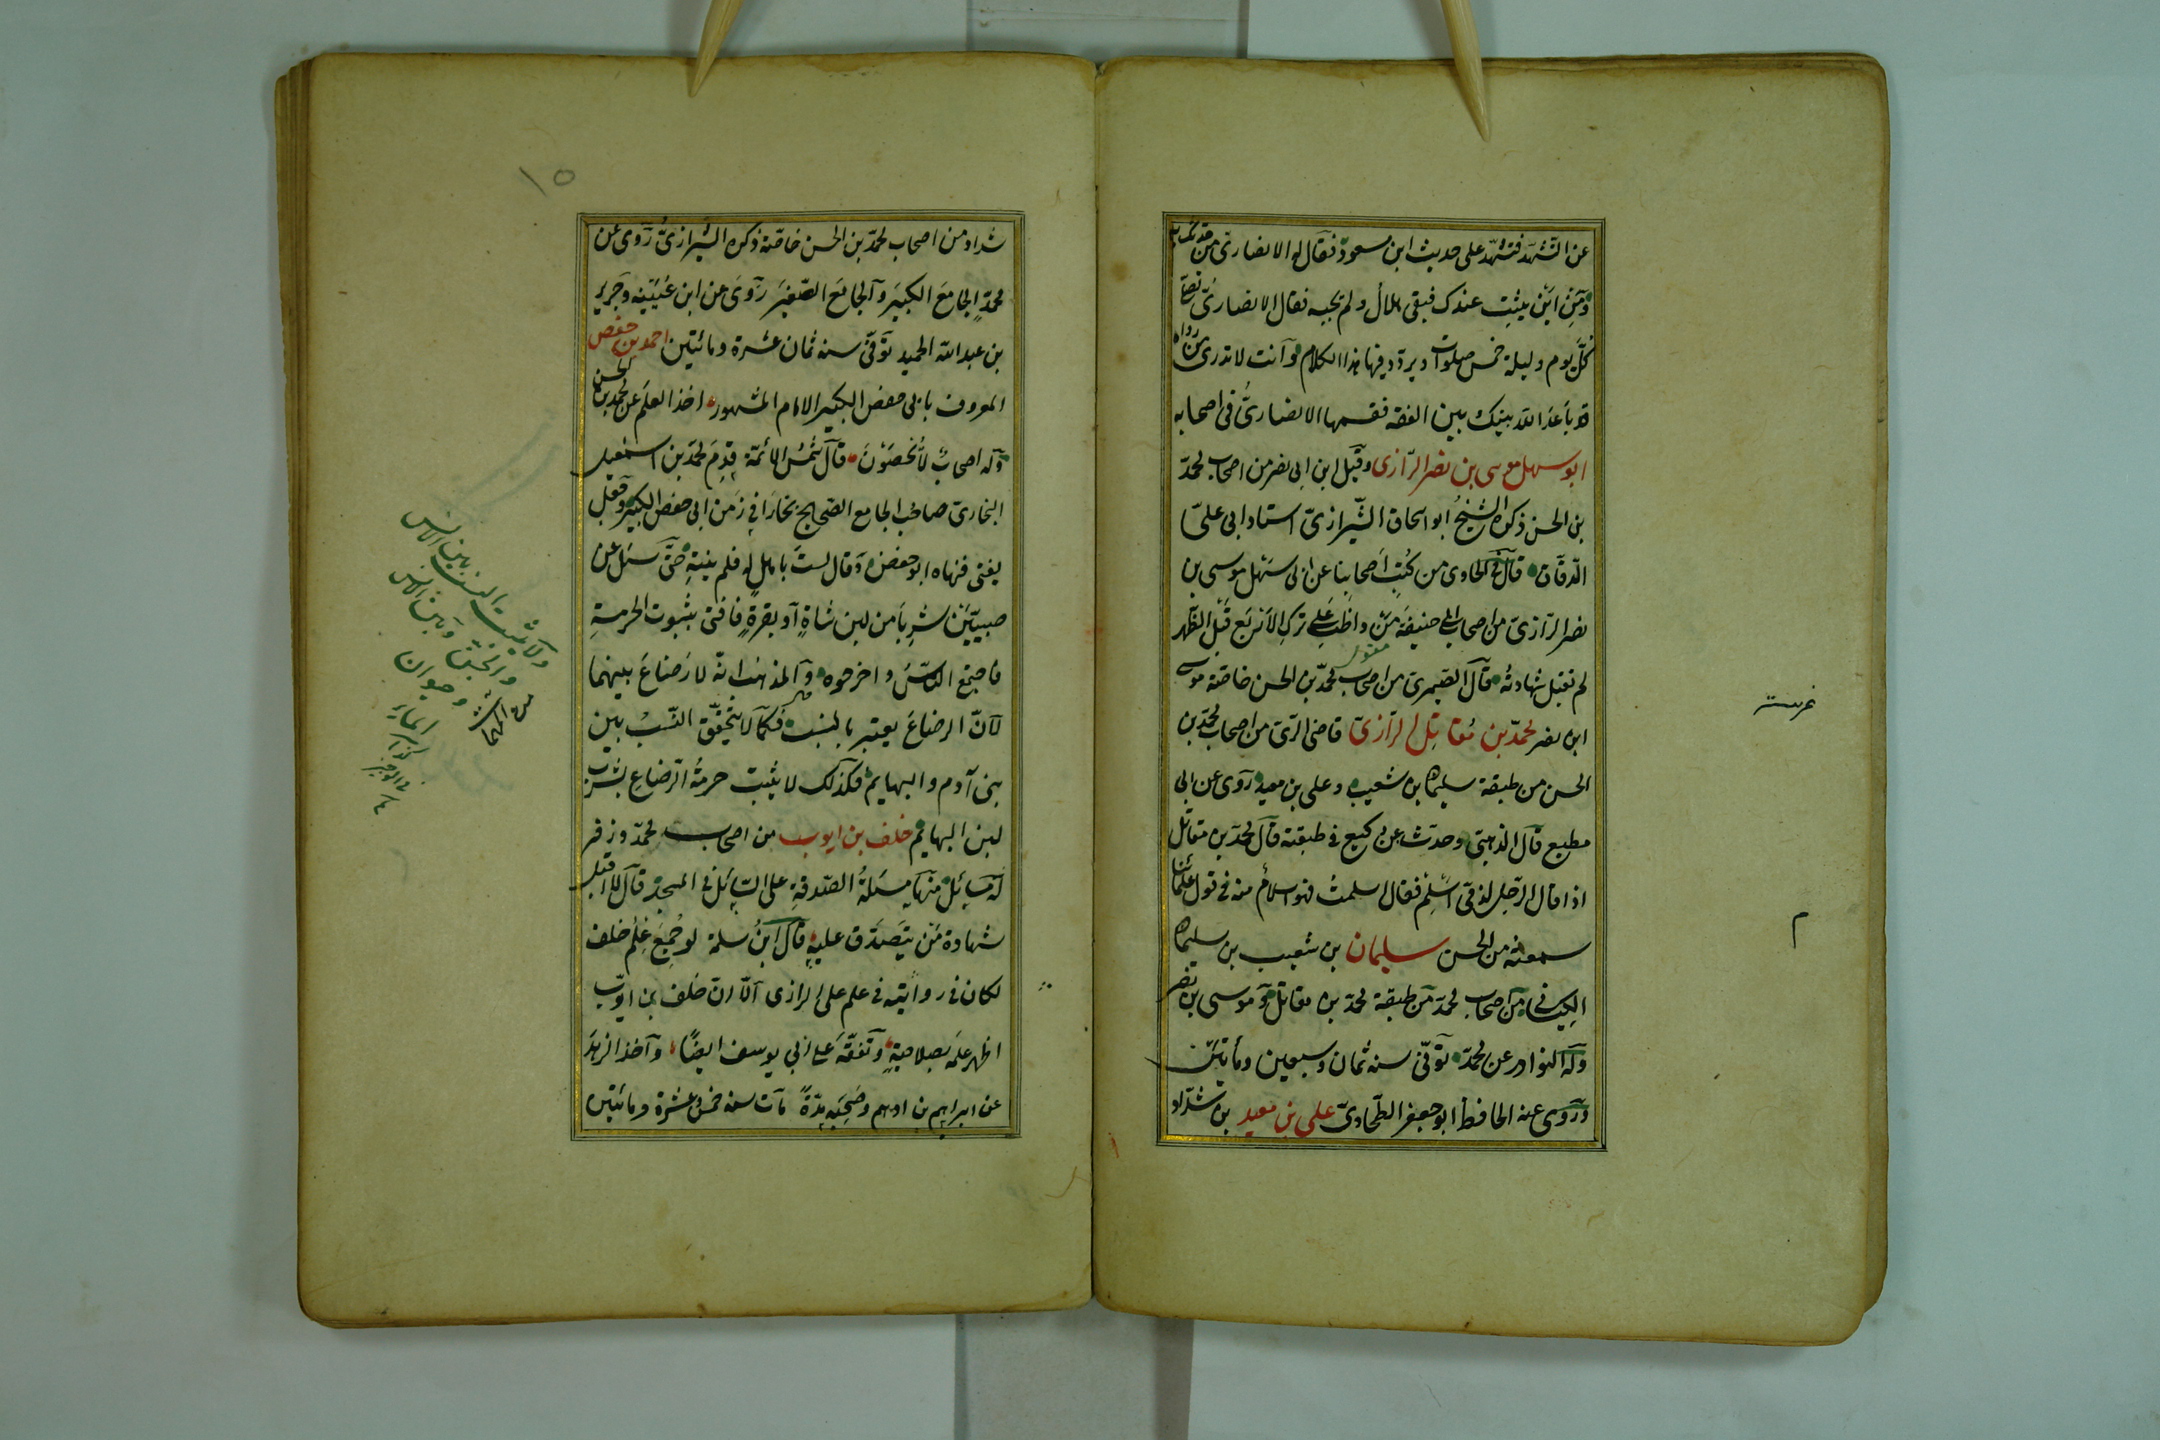 عن التشهد فتشهد على حديث ابن مسعود فقال له الانصاري من حدثك بهذا
ومن اين يثبت عندك فبقى الرجل ولم يجبه فقال الانصاري تصلي
كل يوم وليلة خمس صلوات ويردد فيها هذا الكلام وانت لا تدري من رواه
قد باعد الله بينك بين الفقه فقسمها الانصاري في اصحابه
ابو سهل موسى بن نصر الرازي وقيل ابن ابي نصر من اصحاب محمد
بن الحسن ذكره الشيخ ابو اسحاق الشيرازي استاد ابي علي
الدقاق قال في الحاوي من كتب اصحابنا عن ابي سهل موسى بن
نصر الرازي من اصحاب ابي حنيفة من واظب على ترك الاربع قبل الظهر
لم تقبل شهادته قال الصيمري من اصحاب محمد بن الحسن خاصة موسى
ابن نصر محمد بن مقاتل الرازي قاضي الري من اصحاب محمد بن
الحسن من طبقة سليمان بن شعيب وعلي بن معبد روى عن ابي
مطيع قال الذهبي وحدث عن وكيع في طبقته قال محمد بن مقاتل
اذا قال الرجل لذمي اسلم فقال اسلمت فهو اسلام منه في قول علمائنا
سمعته من الحسن سليمان بن شعيب بن سليمان
الكيساني من اصحاب محمد من طبقة محمد بن مقاتل وموسى بن نصر
وله النوادر عن محمد توفي سنة ثمان وسبعين ومأتين
وروى عنه الحافظ ابو جعفر الطحاوي علي بن معبد بن شداد
١٥
شداد من اصحاب محمد بن الحسن خاصة ذكره الشيرازي روى عن
محمد الجامع الكبير والجامع الصغير روى عن ابن عيينه وجرير
بن عبد الله الحميد توفي سنه ثمان عشرة ومائتين احمد بن حفص
المعروف بابي حفص الكبير الامام المشهور اخذ العلم عن محمد بن الحسن
وله اصحاب لا يحصون قال شمس الائمة قدم محمد بن اسمعيل
البخاري صاحب الجامع الصحيح بخارا في زمن ابي حفص الكبير وجعل
يفتي فنهاه ابو حفص وقال لست باهل له فلم ينته حتى سئل عن
صبيين شربا من لبن شاة او بقرة فافتى بثبوت الحرمة
فاجتمع الناس واخرجوه والمذهب انه لا رضاع بينهما
لان الرضاع يعتبر بالنسب فكما لا يتحقق النسب بين
بني آدم والبهايم فكذلك لا يثبت حرمة الرضاع بشرب
لبن البهايم خلف بن ايوب من اصحاب محمد وزفر
له مسائل منها مسئلة الصدقة على السائل في المسجد قال لا اقبل
شهادة من يتصدق عليه قال ابن سلمة لو جمع علم خلف
لكان في روايته في علم علي الرازي الا ان خلف بن ايوب
اظهر علمه بصلاحيته وتفقه على ابي يوسف ايضا واخذ الزهد
عن ابراهيم بن ادهم وصحبه مدة مات سنه خمس عشرة ومائتين